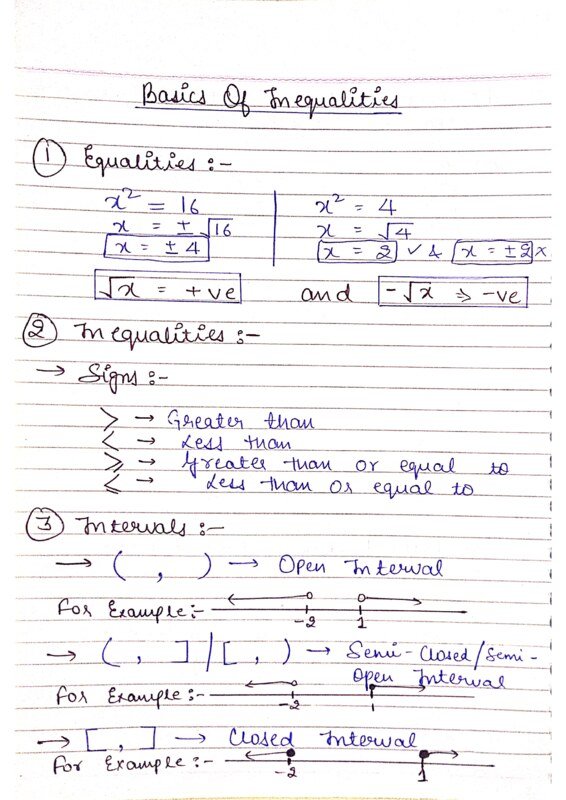 Basics Of Inequalities
① Equalities :-
x² = 16
x = ± √16
x = ± 4
x² = 4
x = √4
x = 2 ✓ & x = ±2 ×
√x = +ve and -√x ⇒ -ve
② Inequalities :-
→ Signs :-
> → Greater than
< → Less than
⩾ → Greater than or equal to
⩽ → Less than or equal to
③ Intervals :-
→ ( , ) → Open Interval
For Example :-
-2 1
→ ( , ] / [ , ) → Semi-Closed/Semi-
Open Interval
For Example :-
-2 1
→ [ , ] → Closed Interval
For Example :-
-2 1